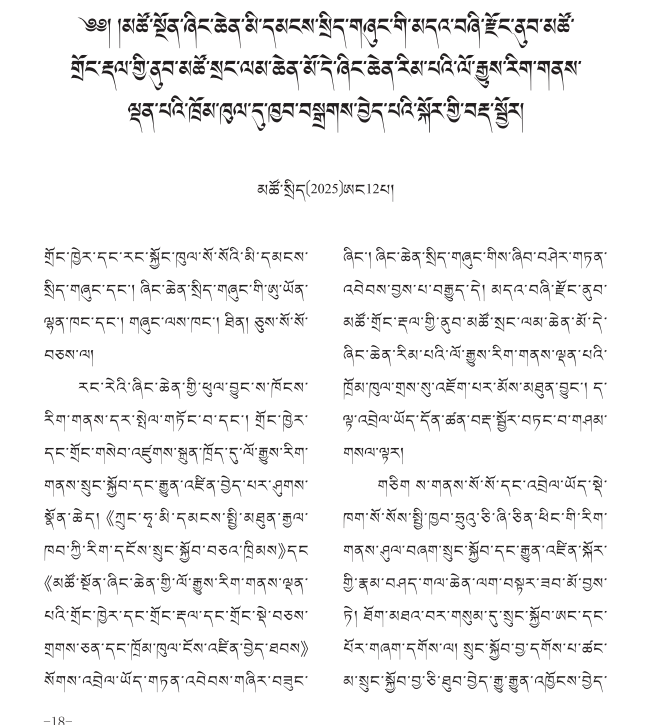 ༄༅། །མཚོ་སྔོན་ཞིང་ཆེན་མི་དམངས་སྲིད་གཞུང་གི་མདའ་བཞི་རྫོང་ནུབ་མཚོ་
གྲོང་རྡལ་གྱི་ནུབ་མཚོ་སྲང་ལམ་ཆེན་མོ་དེ་ཞིང་ཆེན་རིམ་པའི་ལོ་རྒྱུས་རིག་གནས་
ལྡན་པའི་ཁྲོམ་ཁུལ་དུ་ཁྱབ་བསྒྲགས་བྱེད་པའི་སྐོར་གྱི་བརྡ་སྦྱོར།
མཚོ་སྲིད(2025)ཨང12པ།
གྲོང་ཁྱེར་དང་རང་སྐྱོང་ཁུལ་སོ་སོའི་མི་དམངས་
སྲིད་གཞུང་དང་། ཞིང་ཆེན་སྲིད་གཞུང་གི་ཨུ་ཡོན་
ལྷན་ཁང་དང་། གཞུང་ལས་ཁང་། ཐིན། ཅུས་སོ་སོ་
བཅས་ལ།
རང་རེའི་ཞིང་ཆེན་གྱི་ཕུལ་བྱུང་ས་ཁོངས་
རིག་གནས་དར་སྤེལ་གཏོང་བ་དང་། གྲོང་ཁྱེར་
དང་གྲོང་གསེབ་འཛུགས་སྐྲུན་ཁྲོད་དུ་ལོ་རྒྱུས་རིག་
གནས་སྲུང་སྐྱོབ་དང་རྒྱུན་འཛིན་བྱེད་པར་ཤུགས་
སྣོན་ཆེད། 《ཀྲུང་ཧྭ་མི་དམངས་སྤྱི་མཐུན་རྒྱལ་
ཁབ་ཀྱི་རིག་དངོས་སྲུང་སྐྱོབ་བཅའ་ཁྲིམས》དང
《མཚོ་སྔོན་ཞིང་ཆེན་གྱི་ལོ་རྒྱུས་རིག་གནས་ལྡན་
པའི་གྲོང་ཁྱེར་དང་གྲོང་རྡལ་དང་གྲོང་སྡེ་བཅས་
གྲགས་ཅན་དང་ཁྲོམ་ཁུལ་ངོས་འཛིན་བྱེད་ཐབས》
སོགས་འབྲེལ་ཡོད་གཏན་འབེབས་གཞིར་བཟུང་
ཞིང་། ཞིང་ཆེན་སྲིད་གཞུང་གིས་ཞིབ་བཤེར་གཏན་
འབེབས་བྱས་པ་བརྒྱུད་དེ། མདའ་བཞི་རྫོང་ནུབ་
མཚོ་གྲོང་རྡལ་གྱི་ནུབ་མཚོ་སྲང་ལམ་ཆེན་མོ་དེ་
ཞིང་ཆེན་རིམ་པའི་ལོ་རྒྱུས་རིག་གནས་ལྡན་པའི་
ཁྲོམ་ཁུལ་གྲས་སུ་འཇོག་པར་མོས་མཐུན་བྱུང་། ད་
ལྟ་འབྲེལ་ཡོད་དོན་ཚན་བརྡ་སྦྱོར་བཏང་བ་གཤམ་
གསལ་ལྟར།
གཅིག ས་གནས་སོ་སོ་དང་འབྲེལ་ཡོད་སྡེ་
ཁག་སོ་སོས་སྤྱི་ཁྱབ་ཧྲུའུ་ཅི་ཞི་ཅིན་ཕིང་གི་རིག་
གནས་ཤུལ་བཞག་སྲུང་སྐྱོབ་དང་རྒྱུན་འཛིན་སྐོར་
གྱི་རྣམ་བཤད་གལ་ཆེན་ལག་བསྟར་ཟབ་མོ་བྱས་
ཏེ། ཐོག་མཐའ་བར་གསུམ་དུ་སྲུང་སྐྱོབ་ཨང་དང་
པོར་གཞག་དགོས་ལ། སྲུང་སྐྱོབ་བྱ་དགོས་པ་ཚང་
མ་སྲུང་སྐྱོབ་བྱ་ཅི་ཐུབ་བྱེད་རྒྱུ་རྒྱུན་འཁྱོངས་བྱེད་
–18–